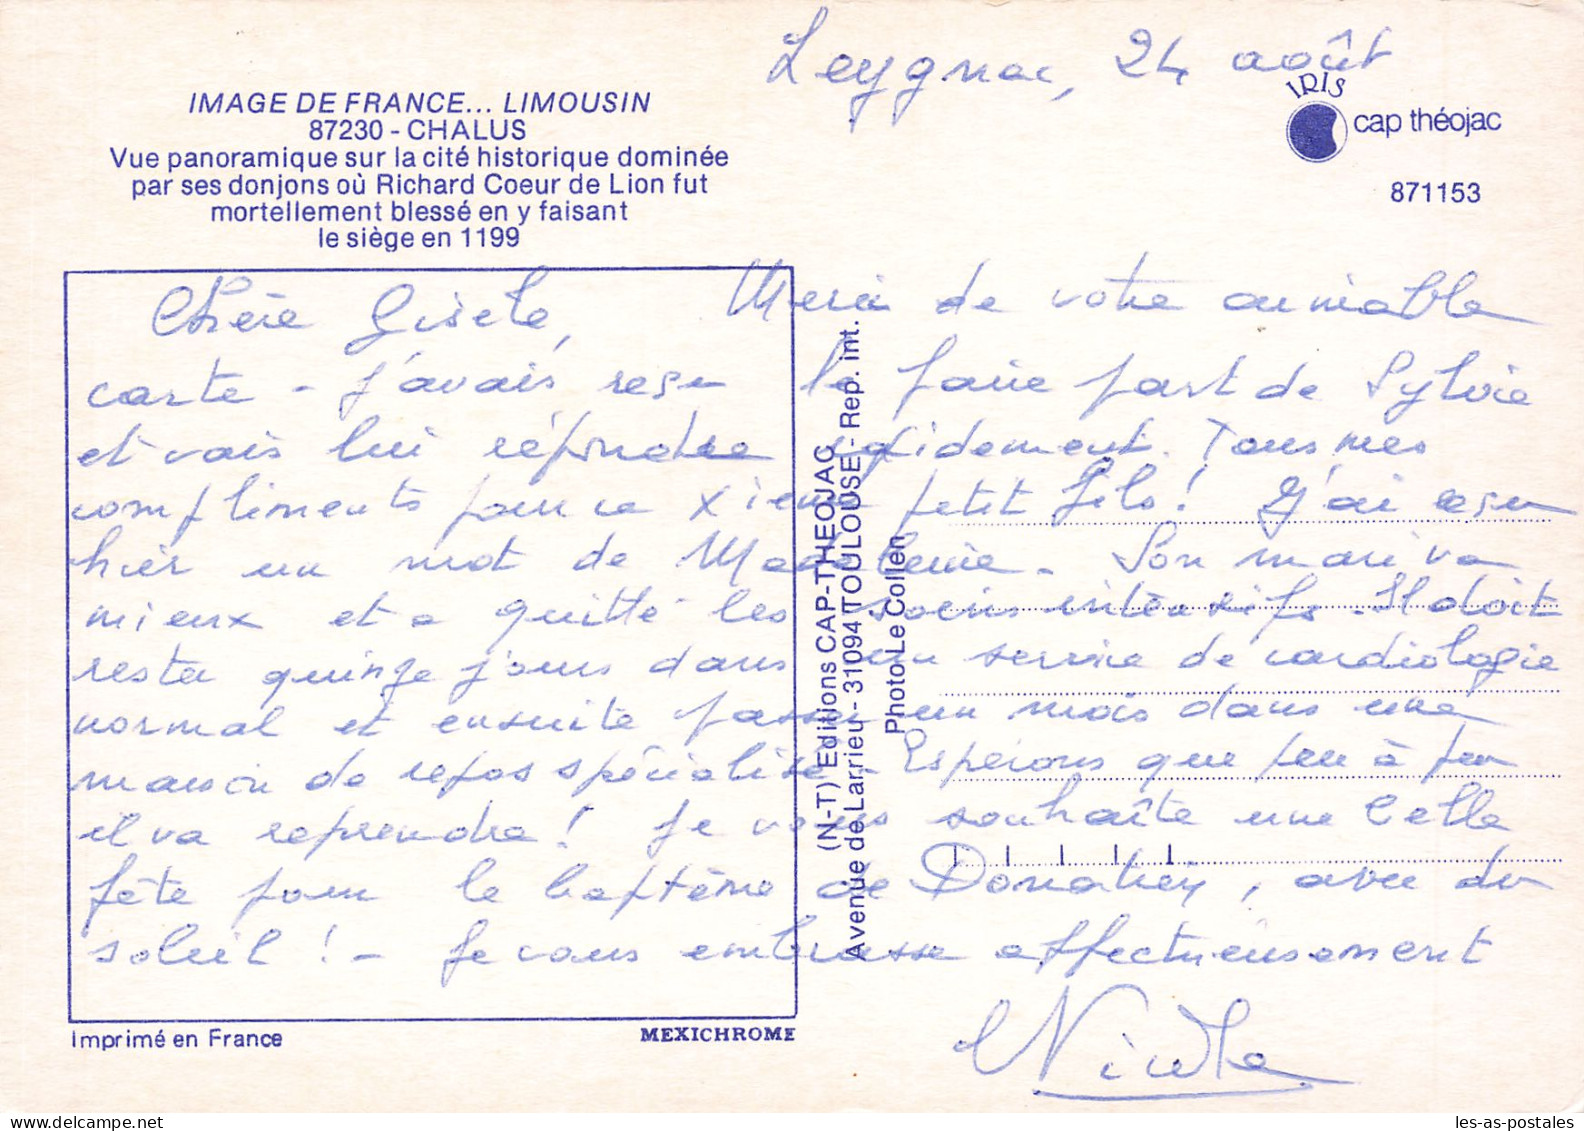 Leygnac, 24 août
IMAGE DE FRANCE... LIMOUSIN
87230 - CHALUS
Vue panoramique sur la cité historique dominée
par ses donjons où Richard Coeur de Lion fut
mortellement blessé en y faisant
le siège en 1199
IRIS
cap théojac
871153
Chère Gisèle, Merci de votre aimable
carte - J'avais reçu le faire part de Sylvie
et vais lui répondre rapidement. Tous mes
compliments pour ce Xième petit fils ! J'ai reçu
hier un mot de Madeleine - Son mari va
mieux et a quitté les soins intensifs - Il doit
rester quinze jours dans un service de cardiologie
normal et ensuite passer un mois dans une
maison de repos spécialisé - Espérons que peu à peu
il va reprendre ! Je vous souhaite une belle
fête pour le baptême de , avec du
soleil ! - Je vous embrasse affectueusement
Nicole
(N-T) Editions CAP-THEOJAC
Avenue de Larrieu - 31094 TOULOUSE - Rep. int.
Photo Le Collen
Imprimé en France
MEXICHROME
les-as-postales